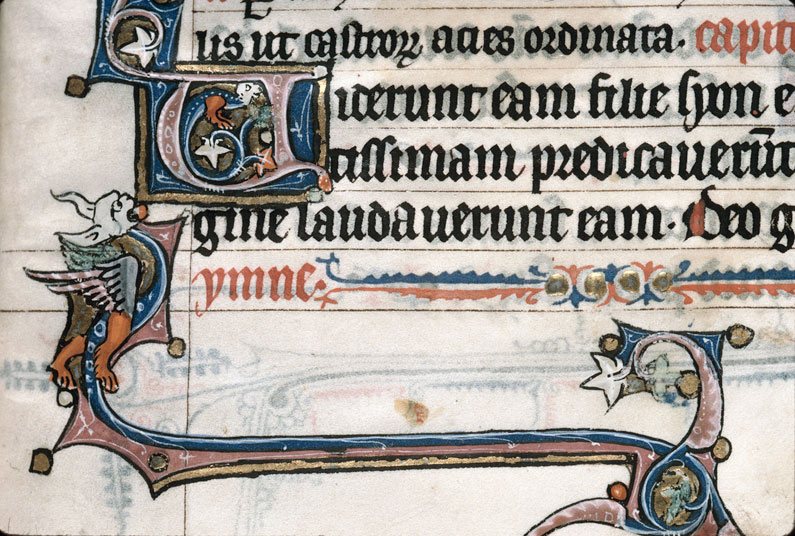 us ut castroꝝ acies ordinata. capit
Uiderunt eam filie syon e
tissimam predicauerūt
gine laudauerunt eam. Deo g
ymne.